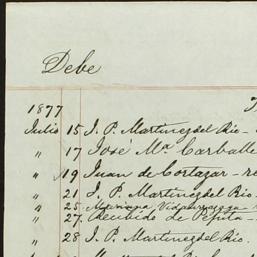 Debe
1877
Julio 15 J. P. Martinez del Rio -
" 17 José Ma Carballe
" 19 Juan de Cortazar - re
" 21 J. P. Martinez del Rio.
" 25
" 27. Recibido de Pepita -
" 28 J. P. Martinez del Rio.